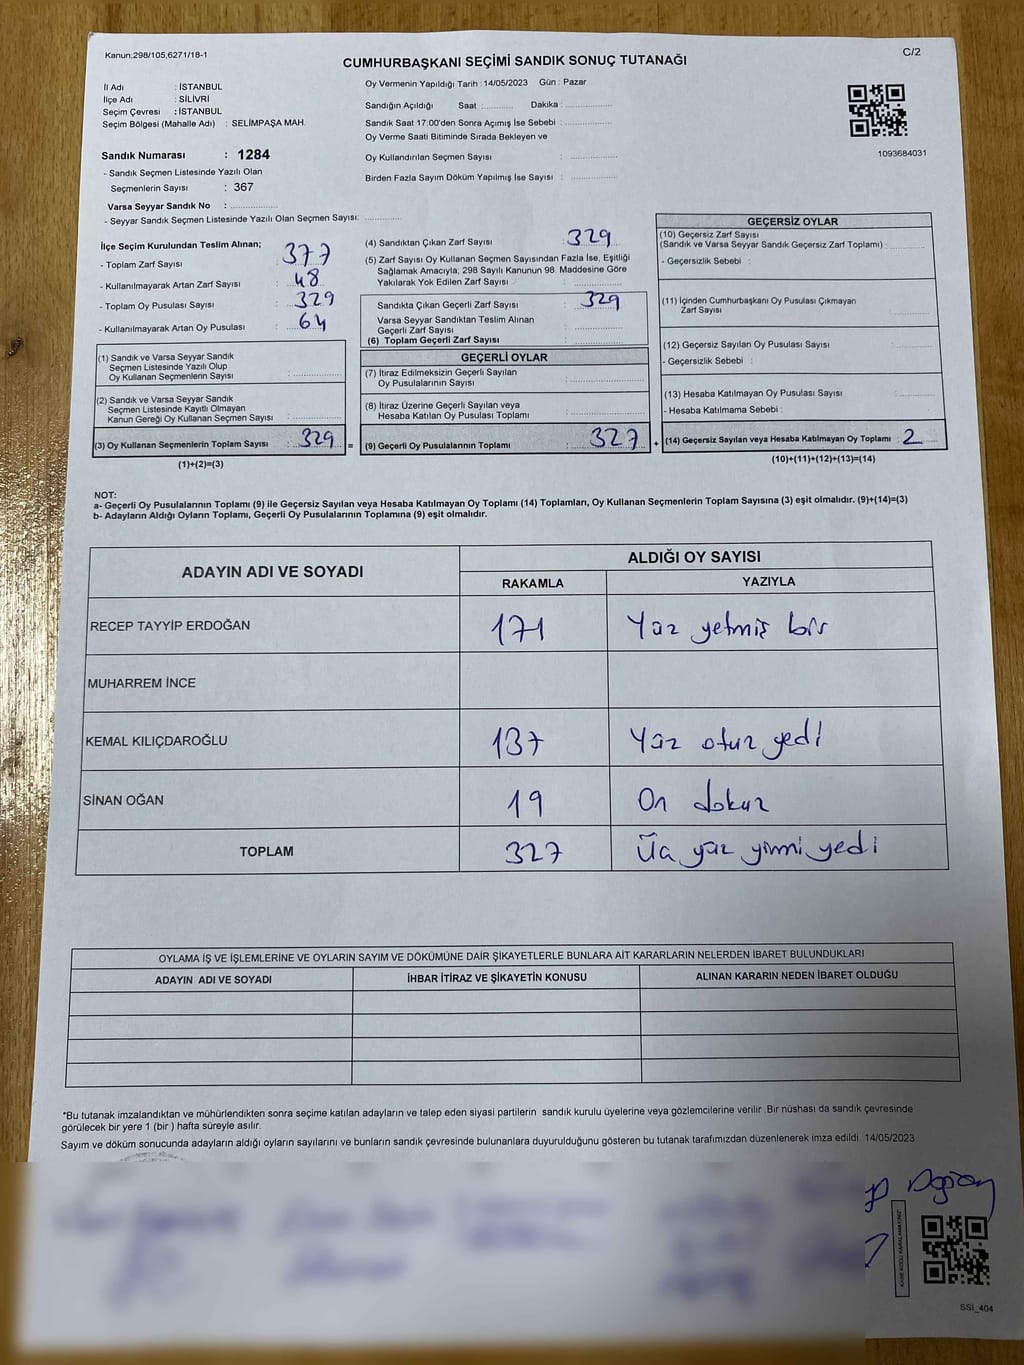 Kanun:298/105,6271/18-1
C/2
CUMHURBAŞKANI SEÇİMİ SANDIK SONUÇ TUTANAĞI
İl Adı : İSTANBUL
İlçe Adı : SİLİVRİ
Seçim Çevresi : İSTANBUL
Seçim Bölgesi (Mahalle Adı) : SELİMPAŞA MAH.
Sandık Numarası : 1284
- Sandık Seçmen Listesinde Yazılı Olan
Seçmenlerin Sayısı : 367
Varsa Seyyar Sandık No :
- Seyyar Sandık Seçmen Listesinde Yazılı Olan Seçmen Sayısı:
Oy Vermenin Yapıldığı Tarih : 14/05/2023 Gün : Pazar
Sandığın Açıldığı Saat : Dakika :
Sandık Saat 17:00'den Sonra Açımış İse Sebebi :
Oy Verme Saati Bitiminde Sırada Bekleyen ve
Oy Kullandırılan Seçmen Sayısı :
Birden Fazla Sayım Döküm Yapılmış İse Sayısı :
1093684031
İlçe Seçim Kurulundan Teslim Alınan;
- Toplam Zarf Sayısı : 377
- Kullanılmayarak Artan Zarf Sayısı : 48
- Toplam Oy Pusulası Sayısı : 329
- Kullanılmayarak Artan Oy Pusulası : 64
(1) Sandık ve Varsa Seyyar Sandık
Seçmen Listesinde Yazılı Olup
Oy Kullanan Seçmenlerin Sayısı :
(2) Sandık ve Varsa Seyyar Sandık
Seçmen Listesinde Kayıtlı Olmayan
Kanun Gereği Oy Kullanan Seçmen Sayısı :
(3) Oy Kullanan Seçmenlerin Toplam Sayısı : 329 =
(1)+(2)=(3)
(4) Sandıktan Çıkan Zarf Sayısı : 329
(5) Zarf Sayısı Oy Kullanan Seçmen Sayısından Fazla İse, Eşitliği
Sağlamak Amacıyla; 298 Sayılı Kanunun 98. Maddesine Göre
Yakılarak Yok Edilen Zarf Sayısı :
Sandıkta Çıkan Geçerli Zarf Sayısı : 329
Varsa Seyyar Sandıktan Teslim Alınan
Geçerli Zarf Sayısı :
(6) Toplam Geçerli Zarf Sayısı :
GEÇERLİ OYLAR
(7) İtiraz Edilmeksizin Geçerli Sayılan
Oy Pusulalarının Sayısı :
(8) İtiraz Üzerine Geçerli Sayılan veya
Hesaba Katılan Oy Pusulası Toplamı :
(9) Geçerli Oy Pusulalarının Toplamı : 327 +
GEÇERSİZ OYLAR
(10) Geçersiz Zarf Sayısı
(Sandık ve Varsa Seyyar Sandık Geçersiz Zarf Toplamı) :
- Geçersizlik Sebebi :
(11) İçinden Cumhurbaşkanı Oy Pusulası Çıkmayan
Zarf Sayısı :
(12) Geçersiz Sayılan Oy Pusulası Sayısı :
- Geçersizlik Sebebi :
(13) Hesaba Katılmayan Oy Pusulası Sayısı :
- Hesaba Katılmama Sebebi :
(14) Geçersiz Sayılan veya Hesaba Katılmayan Oy Toplamı : 2
(10)+(11)+(12)+(13)=(14)
NOT:
a- Geçerli Oy Pusulalarının Toplamı (9) ile Geçersiz Sayılan veya Hesaba Katılmayan Oy Toplamı (14) Toplamları, Oy Kullanan Seçmenlerin Toplam Sayısına (3) eşit olmalıdır. (9)+(14)=(3)
b- Adayların Aldığı Oyların Toplamı, Geçerli Oy Pusulalarının Toplamına (9) eşit olmalıdır.
ADAYIN ADI VE SOYADI
ALDIĞI OY SAYISI
RAKAMLA YAZIYLA
RECEP TAYYİP ERDOĞAN 171 Yüz yetmiş bir
MUHARREM İNCE
KEMAL KILIÇDAROĞLU 137 Yüz otuz yedi
SİNAN OĞAN 19 On dokuz
TOPLAM 327 Üç yüz yirmi yedi
OYLAMA İŞ VE İŞLEMLERİNE VE OYLARIN SAYIM VE DÖKÜMÜNE DAİR ŞİKAYETLERLE BUNLARA AİT KARARLARIN NELERDEN İBARET BULUNDUKLARI
ADAYIN ADI VE SOYADI İHBAR İTİRAZ VE ŞİKAYETİN KONUSU ALINAN KARARIN NEDEN İBARET OLDUĞU
*Bu tutanak imzalandıktan ve mühürlendikten sonra seçime katılan adayların ve talep eden siyasi partilerin sandık kurulu üyelerine veya gözlemcilerine verilir .Bir nüshası da sandık çevresinde
görülecek bir yere 1 (bir ) hafta süreyle asılır.
Sayım ve döküm sonucunda adayların aldığı oyların sayılarını ve bunların sandık çevresinde bulunanlara duyurulduğunu gösteren bu tutanak tarafımızdan düzenlenerek imza edildi. 14/05/2023
SSİ_404